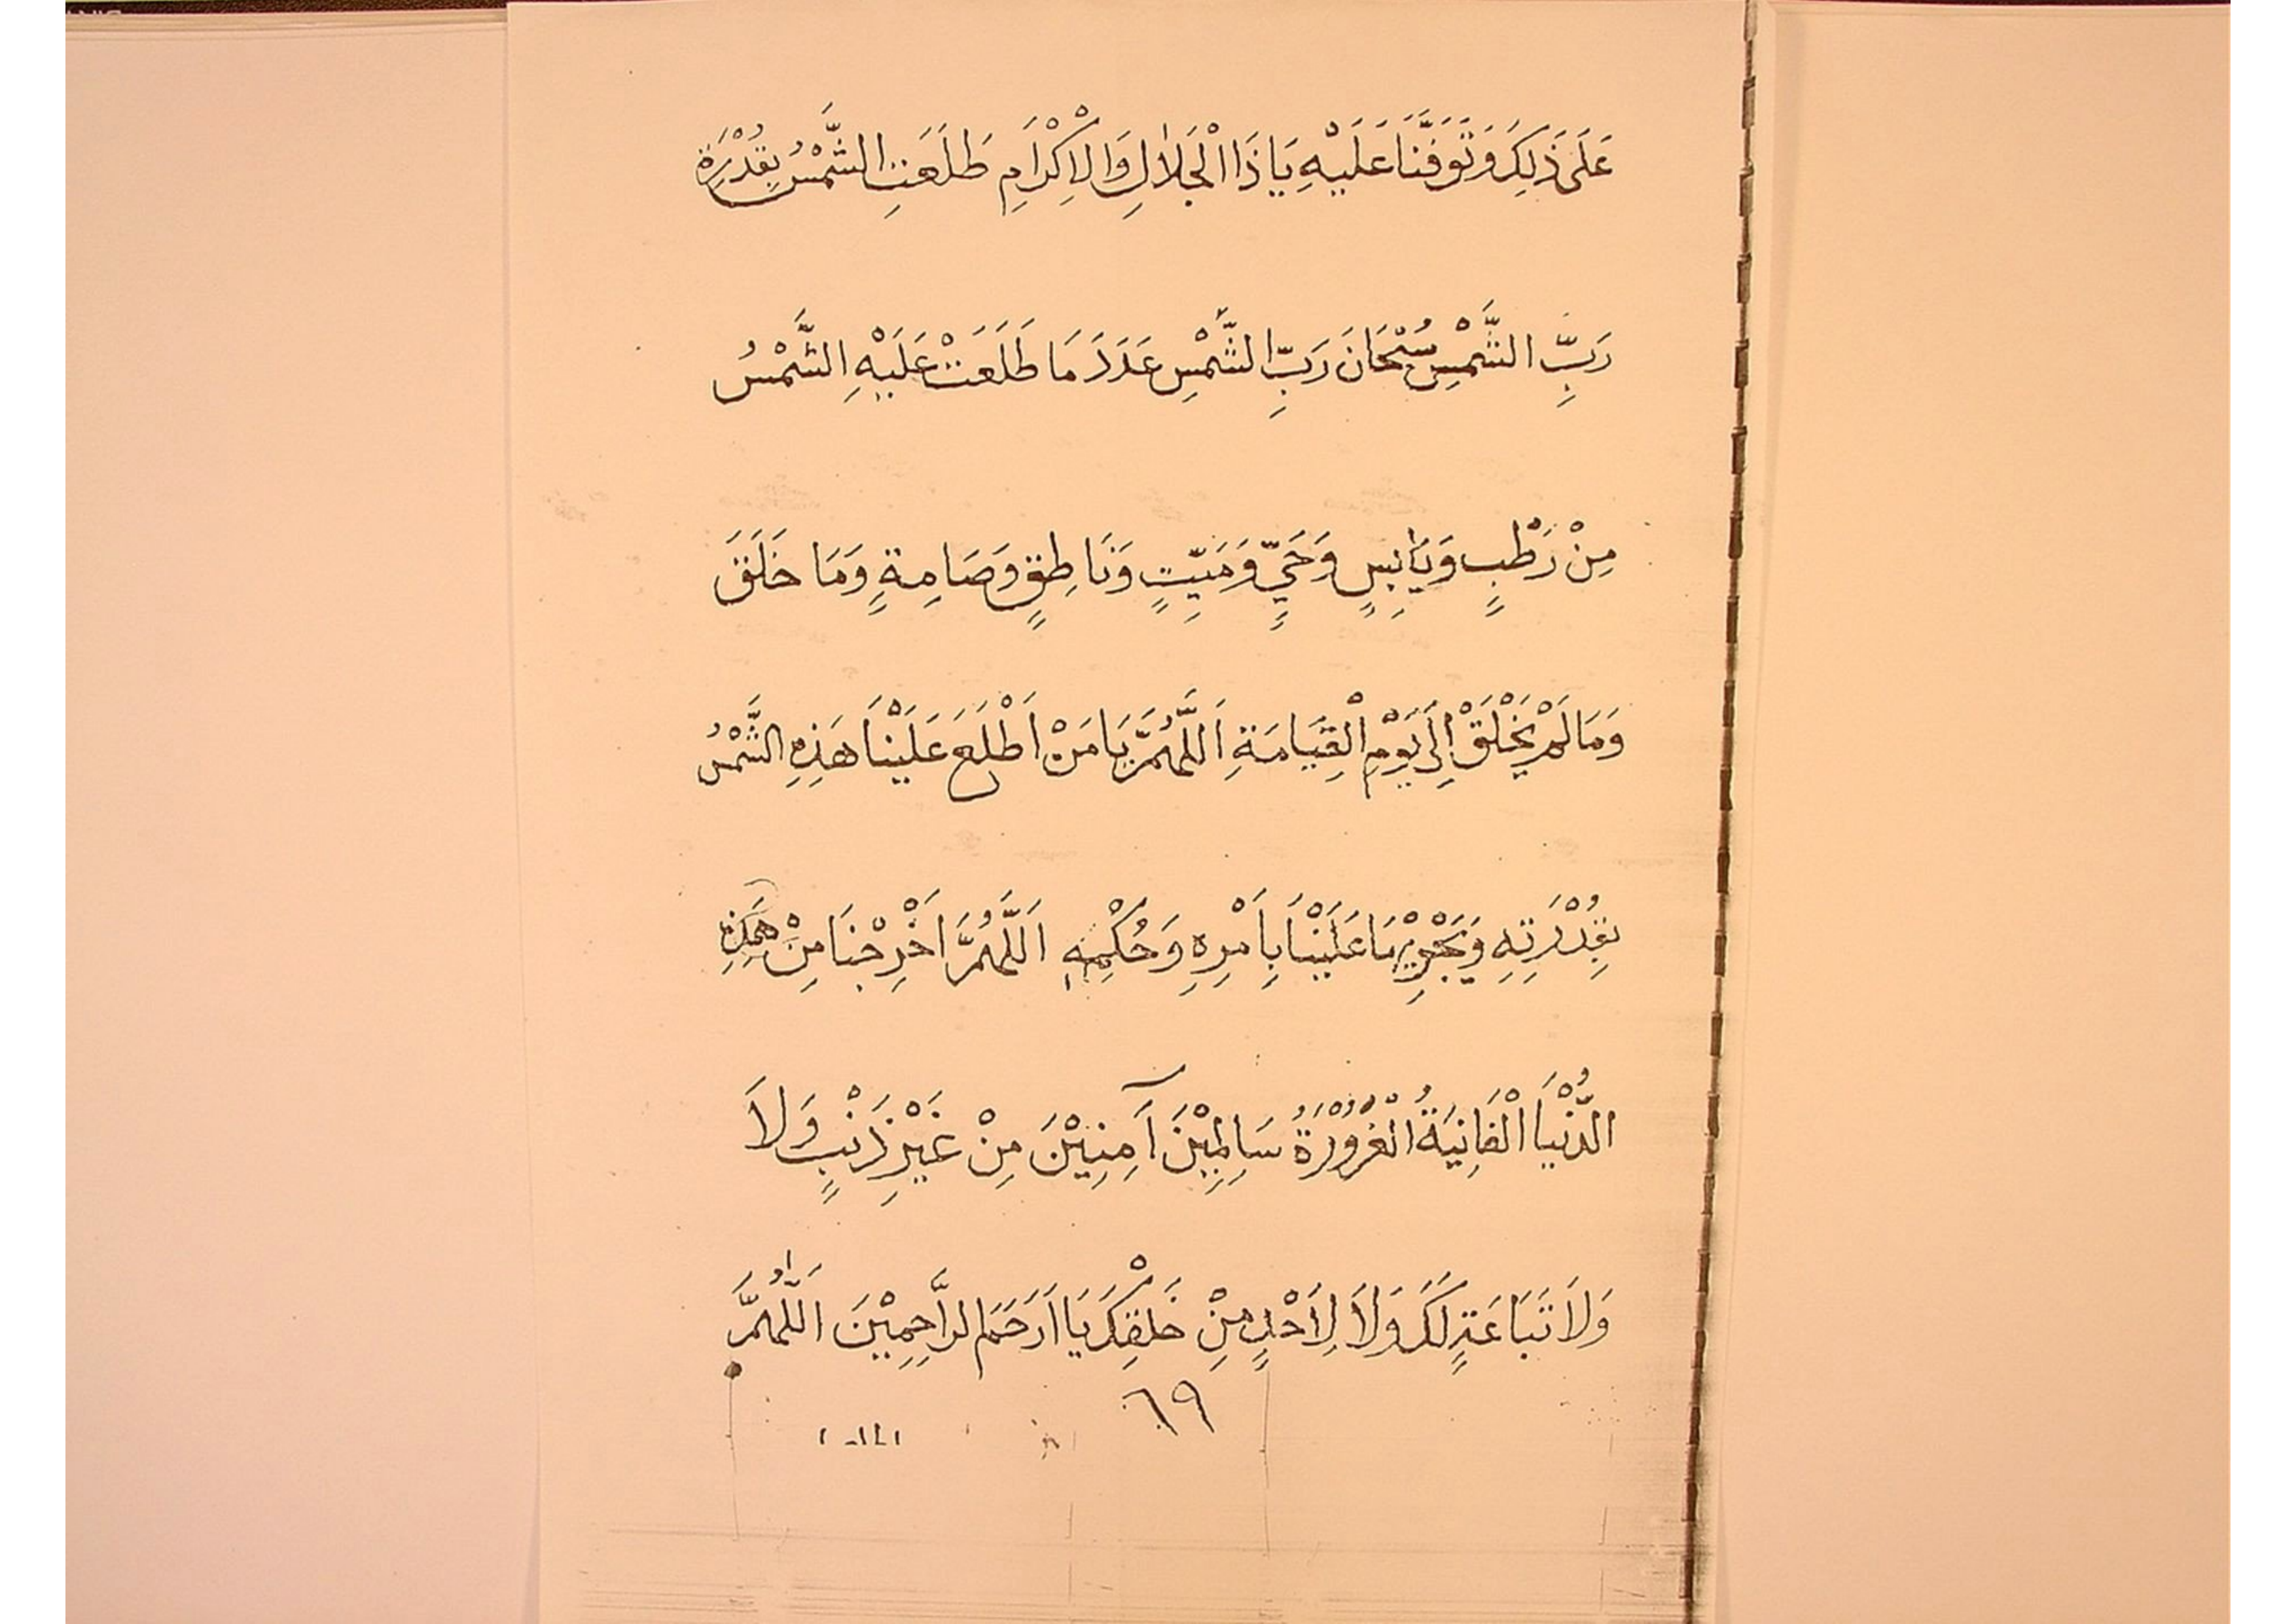 عَلَى ذَلِكَ وَتَوَفَّنَا عَلَيْهِ يَا ذَا الْجَلَالِ وَالْاِكْرَامِ طَلَعَتِ الشَّمْسُ بِقُدْرَةِ
رَبِّ الشَّمْسِ سُبْحَانَ رَبِّ الشَّمْسِ عَدَدَ مَا طَلَعَتْ عَلَيْهِ الشَّمْسُ
مِنْ رَطْبٍ وَيَابِسٍ وَحَيٍّ وَمَيِّتٍ وَنَاطِقٍ وَصَامِةٍ وَمَا خَلَقَ
وَمَا لَمْ يَخْلَقْ اِلَى يَوْمِ الْقِيَامَةِ اَللَّهُمَّ يَا مَنْ اَطْلَعَ عَلَيْنَا هَذِهِ الشَّمْسُ
بِقُدْرَتِهِ وَيَجْرِيْهَا عَلَيْنَا بِاَمْرِهِ وَحُكْمِهِ اَللَّهُمَّ اَخْرِجْنَا مِنْ هَذِهِ
الدُّنْيَا الْفَانِيَةُ الْغُرُوْرَةُ سَالِمِيْنَ آمِنِيْنَ مِنْ غَيْرِ ذَنْبٍ وَلَا
وَلَا تَبَاعَةٍ لَكَ وَلَا لِاَحْدٍ مِنْ خَلْقِكَ يَا اَرْحَمَ الرَّاحِمِيْنَ اَللَّهُمَّ
٦٩